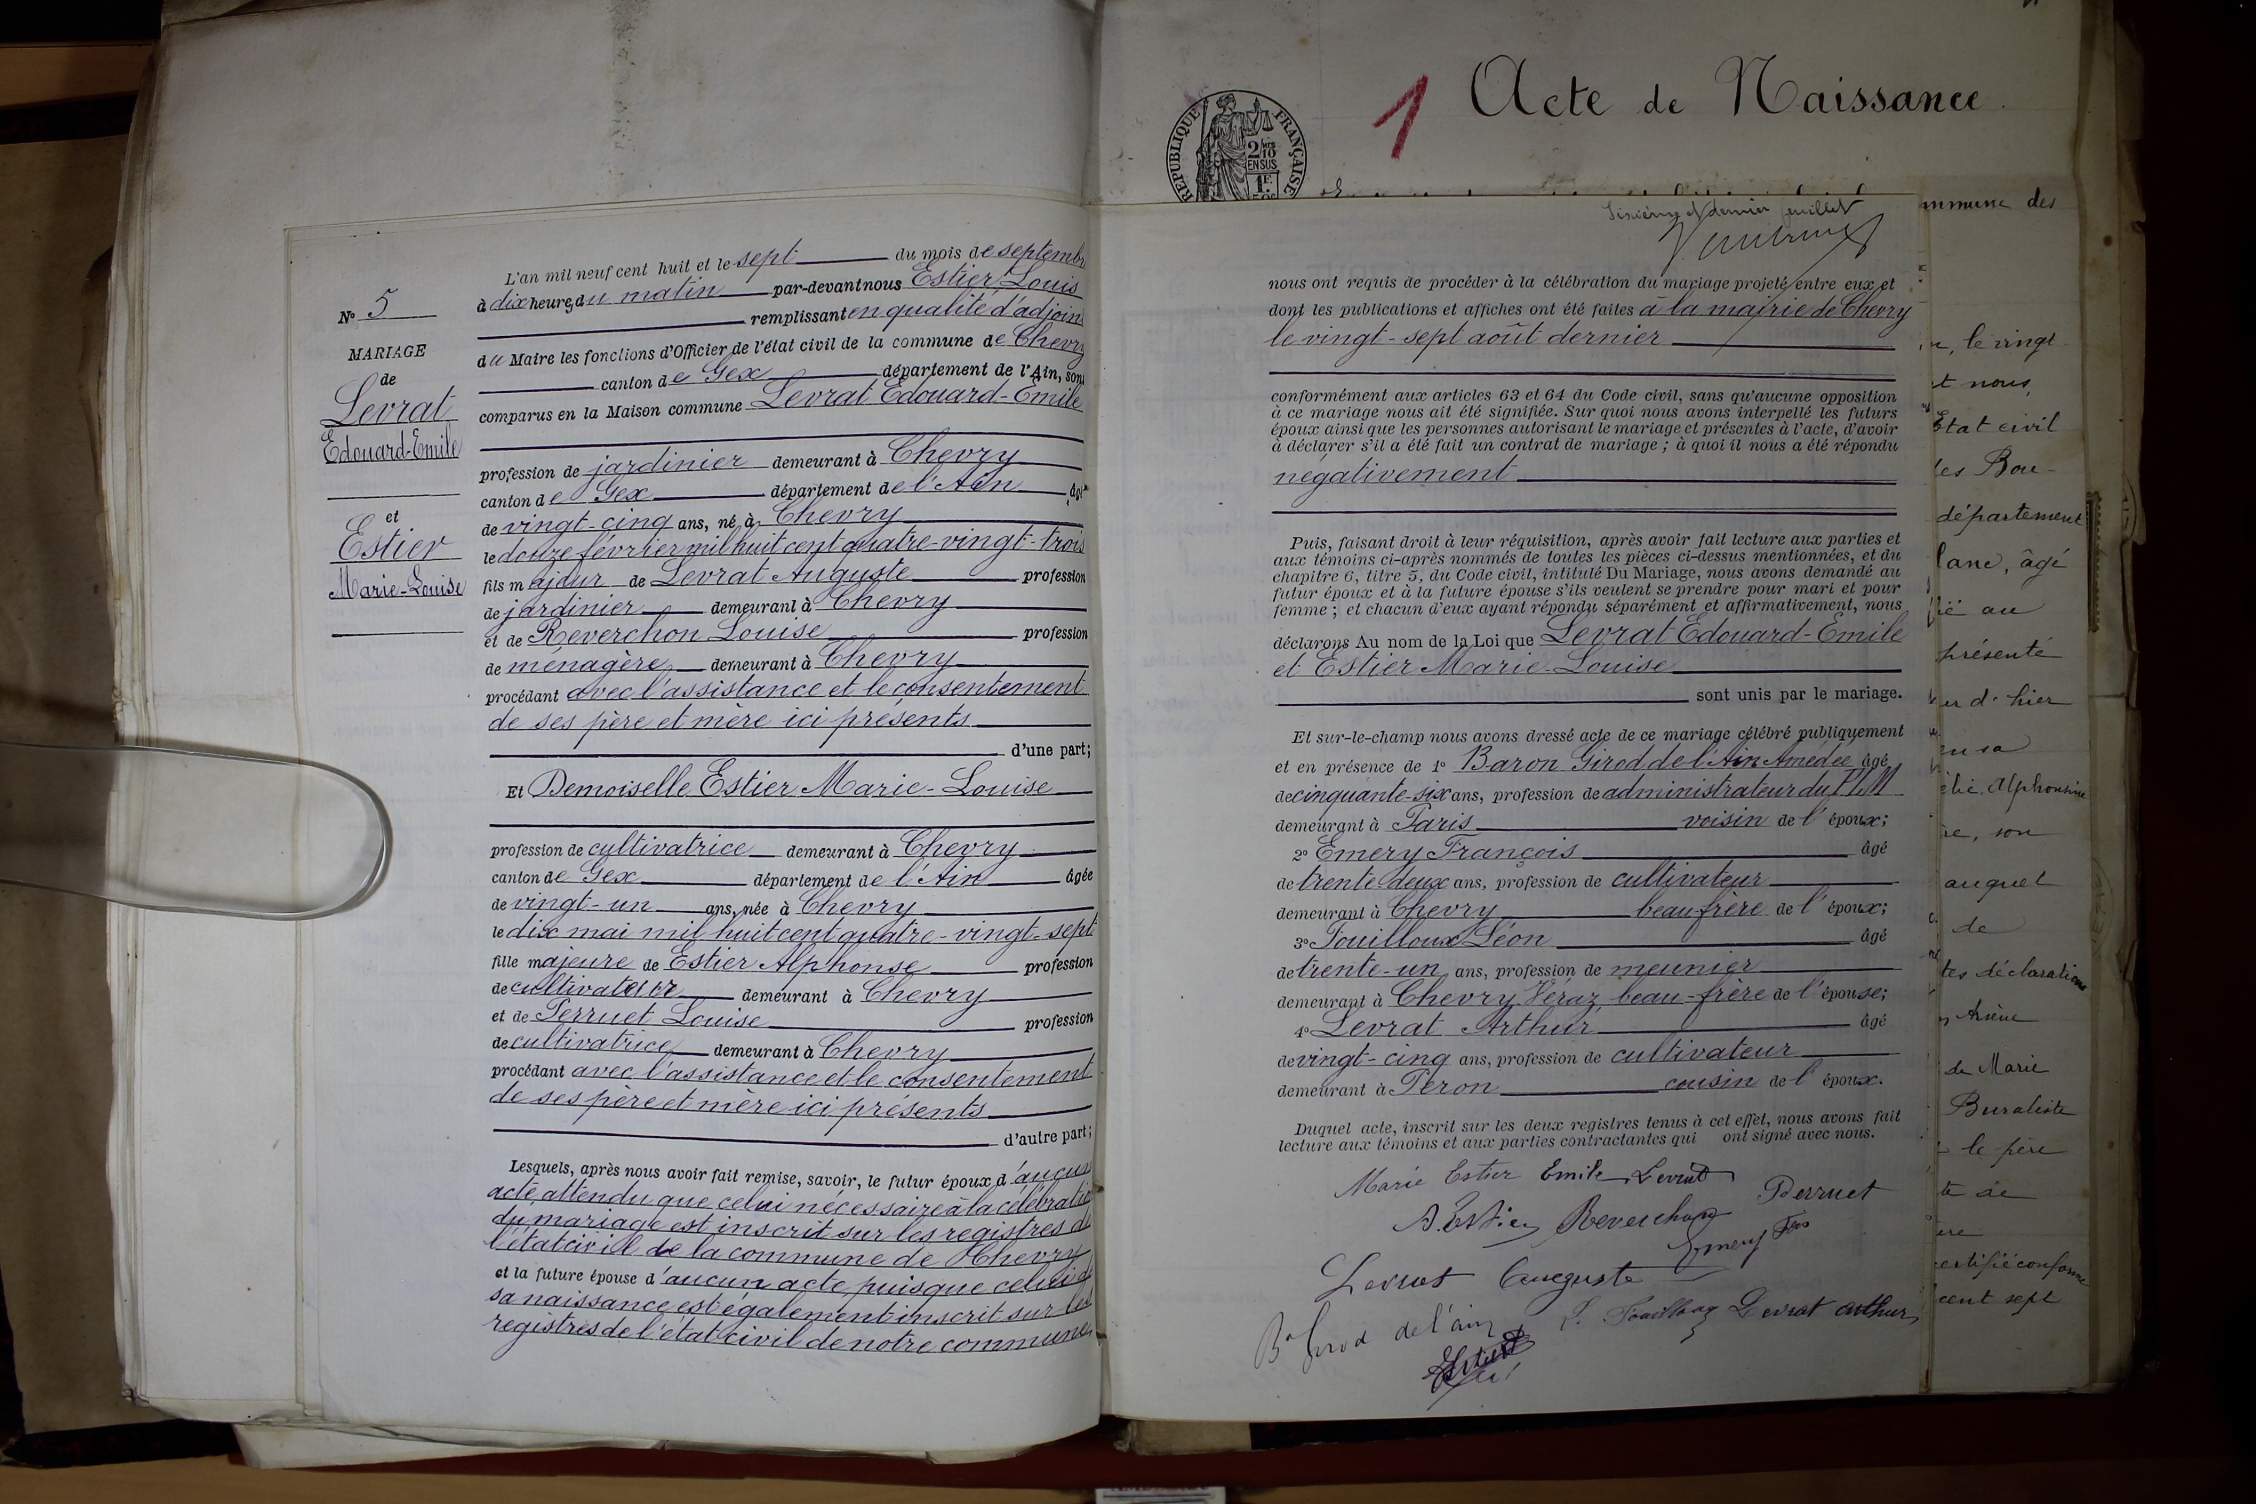 N° 5
MARIAGE
de
Levrat
Edouard-Emile
et
Estier
Marie-Louise
L'an mil neuf cent huit et le sept du mois de septembre
à dix heures du matin par-devant nous Estier Louis
remplissant en qualité d'adjoint
du Maire les fonctions d'Officier de l'état civil de la commune de Chevry
canton de Gex département de l'Ain, sont
comparus en la Maison commune Levrat Edouard-Emile
profession de jardinier demeurant à Chevry
canton de Gex département de l'Ain âgé
de vingt-cinq ans, né à Chevry
le douze février mil huit cent quatre-vingt-trois
fils majeur de Levrat Auguste profession
de jardinier demeurant à Chevry
et de Reverchon Louise profession
de ménagère demeurant à Chevry
procédant avec l'assistance et le consentement
de ses père et mère ici présents
d'une part;
Et Demoiselle Estier Marie-Louise
profession de cultivatrice demeurant à Chevry
canton de Gex département de l'Ain âgée
de vingt-un ans, née à Chevry
le dix mai mil huit cent quatre-vingt-sept
fille majeure de Estier Alphonse profession
de cultivateur demeurant à Chevry
et de Perruet Louise profession
de cultivatrice demeurant à Chevry
procédant avec l'assistance et le consentement
de ses père et mère ici présents
d'autre part;
Lesquels, après nous avoir fait remise, savoir, le futur époux d'aucun
acte, attendu que celui nécessaire à la célébration
du mariage est inscrit sur les registres de
l'état civil de la commune de Chevry
et la future épouse d'aucun acte, puisque celui de
sa naissance est également inscrit sur les
registres de l'état civil de notre commune
1
Acte de Naissance
RÉPUBLIQUE FRANÇAISE
2/10
EN SUS
1F
mmune des
Sixième et dernier feuillet
nous ont requis de procéder à la célébration du mariage projeté entre eux et
dont les publications et affiches ont été faites à la mairie de Chevry
le vingt-sept août dernier
conformément aux articles 63 et 64 du Code civil, sans qu'aucune opposition
à ce mariage nous ait été signifiée. Sur quoi nous avons interpellé les futurs
époux ainsi que les personnes autorisant le mariage et présentes à l'acte, d'avoir
à déclarer s'il a été fait un contrat de mariage; à quoi il nous a été répondu
négativement
Puis, faisant droit à leur réquisition, après avoir fait lecture aux parties et
aux témoins ci-après nommés de toutes les pièces ci-dessus mentionnées, et du
chapitre 6, titre 5, du Code civil, intitulé Du Mariage, nous avons demandé au
futur époux et à la future épouse s'ils veulent se prendre pour mari et pour
femme; et chacun d'eux ayant répondu séparément et affirmativement, nous
déclarons Au nom de la Loi que Levrat Edouard-Emile
et Estier Marie-Louise
sont unis par le mariage.
Et sur-le-champ nous avons dressé acte de ce mariage célébré publiquement
et en présence de 1° Baron Girod de l'Ain Amédée âgé
de cinquante-six ans, profession de administrateur du PLM
demeurant à Paris voisin de l'époux;
2° Emery François âgé
de trente-deux ans, profession de cultivateur
demeurant à Chevry beau-frère de l'époux;
3° Fouilloux Léon âgé
de trente-un ans, profession de meunier
demeurant à Chevry Véraz, beau-frère de l'épouse;
4° Levrat Arthur âgé
de vingt-cinq ans, profession de cultivateur
demeurant à Péron cousin de l'époux.
Duquel acte, inscrit sur les deux registres tenus à cet effet, nous avons fait
lecture aux témoins et aux parties contractantes qui ont signé avec nous.
Marie Estier Emile Levrat
Perruet
A. Estier Reverchon
Emery Fois
Levrat Auguste
Bon Girod de l'ain L. Fouilloux Levrat arthur
Estier
le vingt
et nous
Etat civil
les Bou-
département
lanc, âgé
au
présenté
d'hier
en sa
Alphonsine
son
auquel
de
tes déclarations
Anne
de Marie
Buraliste
le père
te de
certifié conforme
cent sept